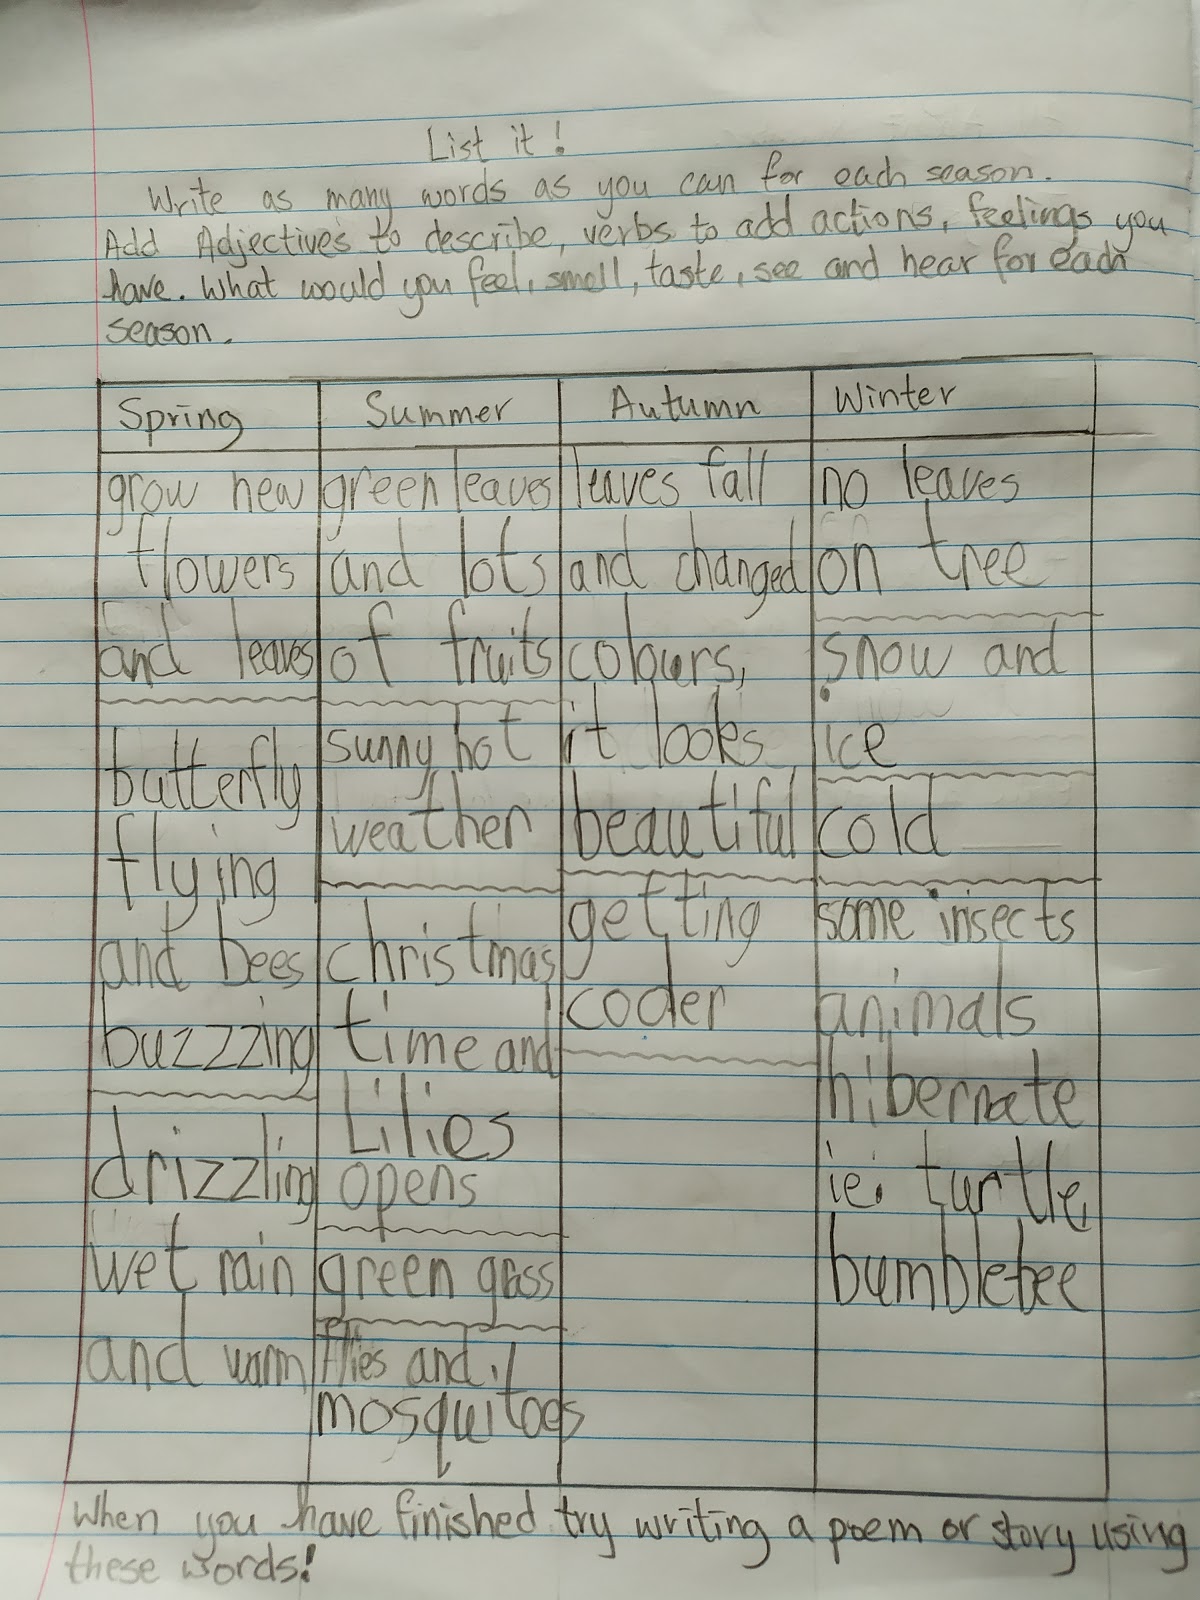 List it!
Write as many words as you can for each season.
Add Adjectives to describe, verbs to add actions, feelings you
have. What would you feel, smell, taste, see and hear for each
season.
Spring
grow new
flowers
and leaves
butterfly
flying
and bees
buzzzing
drizzling
wet rain
and warm
Summer
green leaves
and lots
of fruits
sunny hot
weather
christmas
time and
Lilies
opens
green grass
flies and
mosquitoes
Autumn
leaves fall
and changed
colours,
it looks
beautiful
getting
coder
Winter
no leaves
on tree
snow and
ice
cold
some insects
animals
hibernate
ie. turtle,
bumblebee
When you have finished try writing a poem or story using
these words!